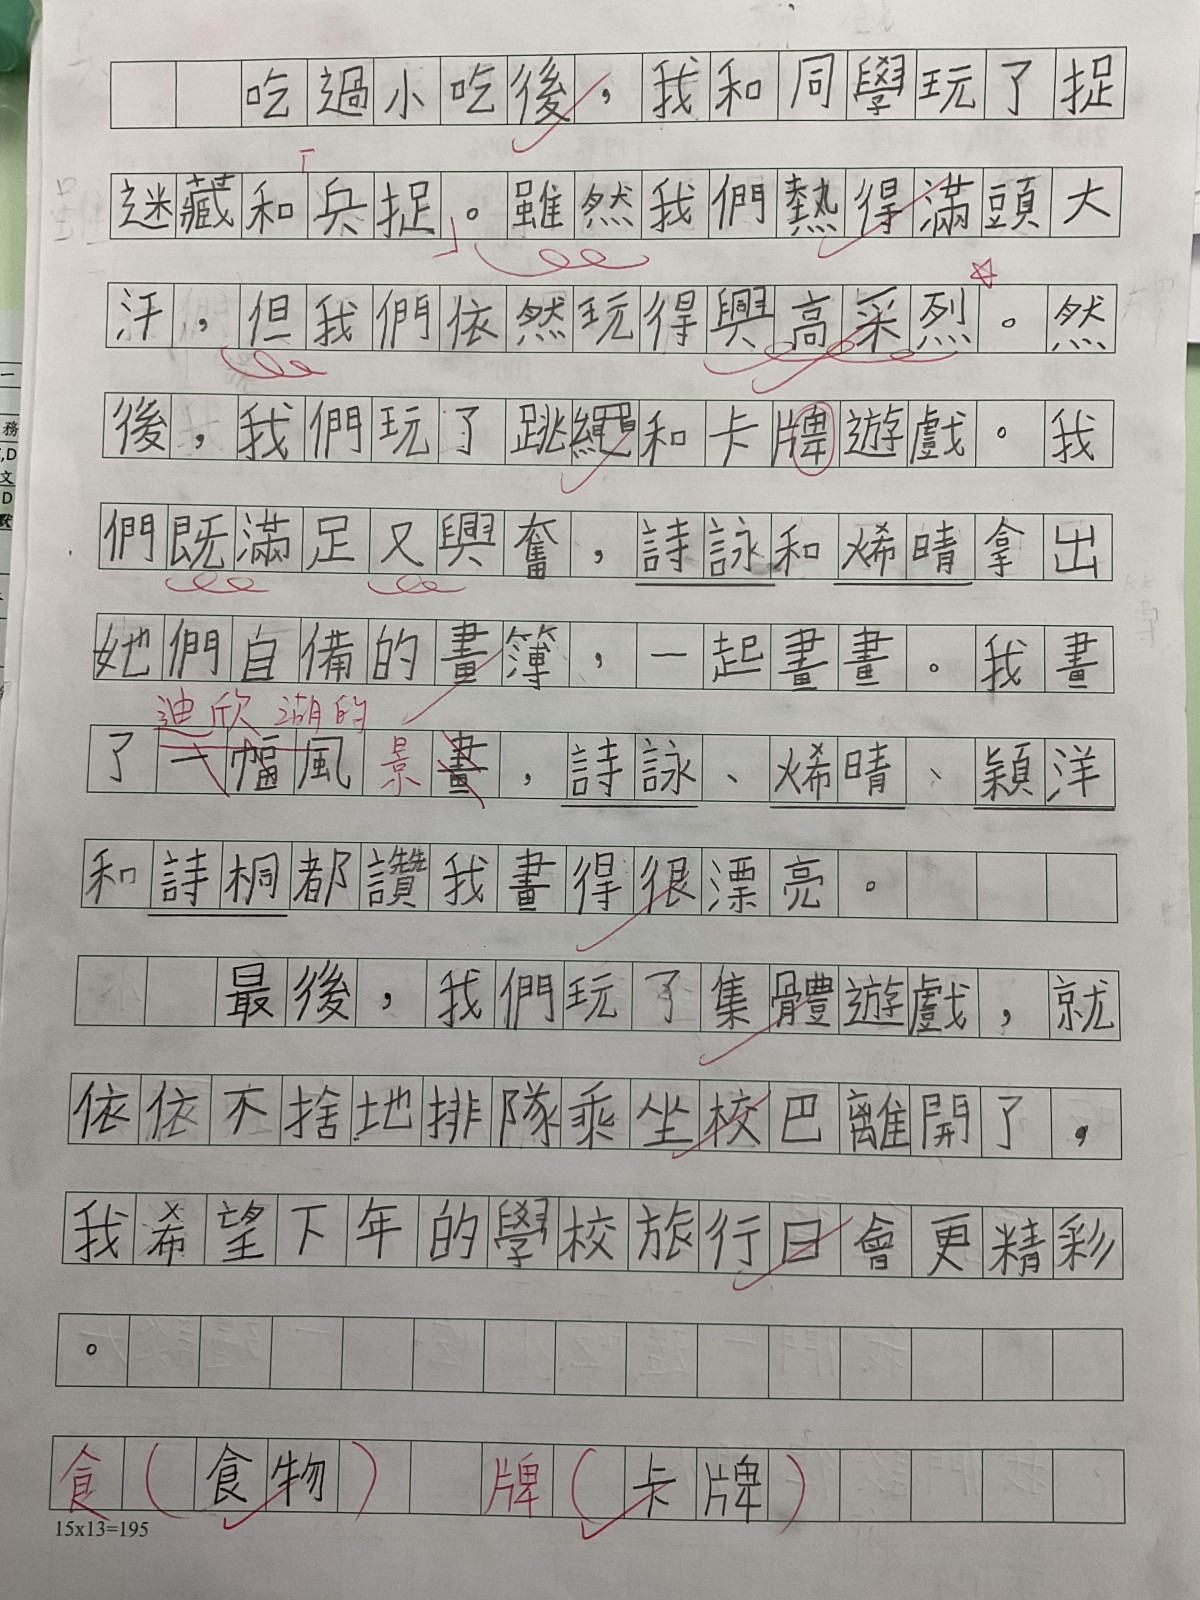 吃過小吃後，我和同學玩了捉
迷藏和「兵捉」。雖然我們熱得滿頭大
汗，但我們依然玩得興高采烈。然
後，我們玩了跳繩和卡牌遊戲。我
們既滿足又興奮，詩詠和烯晴拿出
她們自備的畫簿，一起畫畫。我畫
迪欣湖的
了一幅風景畫，詩詠、烯晴、穎洋
和詩桐都讚我畫得很漂亮。
最後，我們玩了集體遊戲，就
依依不捨地排隊乘坐校巴離開了，
我希望下年的學校旅行日會更精彩
。
食（食物） 牌（卡牌）
15x13=195